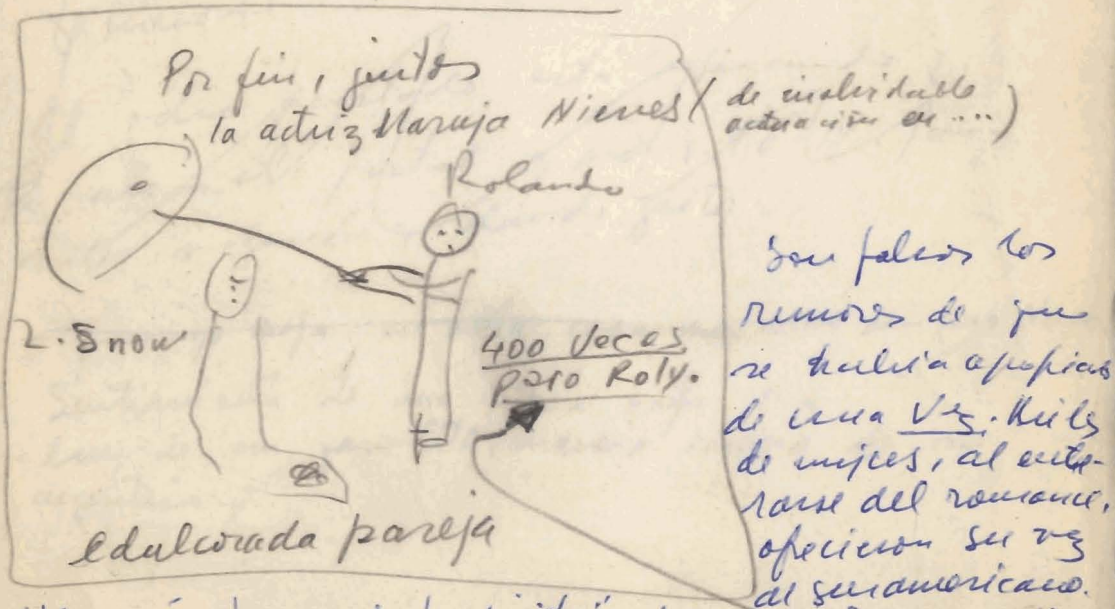 Por fin, juntos
la actriz Maruja Nieves (de inolvidable
actuación en ....)
Rolando
2. Snow
400 Veces
paso Roly.
edulcorada pareja
Son falsos los
rumores de que
se habría apropiado
de una Vez. Miles
de mujeres, al ente-
rarse del romance,
ofrecieron su vez
al suramericano.